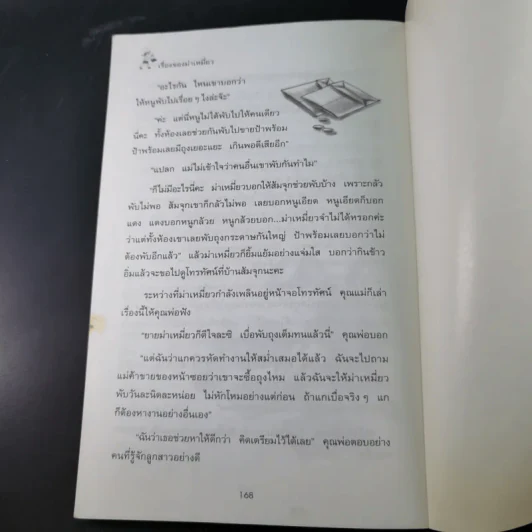 เรื่องของม่าเหมี่ยว
"อะไรกัน ไหนเขาบอกว่า
ให้หนูพับไปเรื่อย ๆ ไงล่ะจ๊ะ"
"ค่ะ แต่นี่หนูไม่ได้พับไปให้คนเดียว
นี่คะ ทั้งห้องเลยช่วยกันพับไปขายป้าพร้อม
ป้าพร้อมเลยมีถุงเยอะแยะ เกินพอดีเสียอีก"
"แปลก แม่ไม่เข้าใจว่าคนอื่นเขาพับกันทำไม"
"ก็ไม่มีอะไรนี่คะ ม่าเหมี่ยวบอกให้ส้มจุกช่วยพับบ้าง เพราะกลัว
พับไม่พอ ส้มจุกเขาก็กลัวไม่พอ เลยบอกหนูเอียด หนูเอียดก็บอก
แดง แดงบอกหนูกล้วย หนูกล้วยบอก...ม่าเหมี่ยวจำไม่ได้หรอกค่ะ
ว่าแต่ทั้งห้องเขาเลยพับถุงกระดาษกันใหญ่ ป้าพร้อมเลยบอกว่าไม่
ต้องพับอีกแล้ว" แล้วม่าเหมี่ยวก็ยิ้มแย้มอย่างแจ่มใส บอกว่ากินข้าว
อิ่มแล้วจะขอไปดูโทรทัศน์ที่บ้านส้มจุกนะคะ
ระหว่างที่ม่าเหมี่ยวกำลังเพลินอยู่หน้าจอโทรทัศน์ คุณแม่ก็เล่า
เรื่องนี้ให้คุณพ่อฟัง
"ยายม่าเหมี่ยวก็ดีใจละซิ เบื่อพับถุงเต็มทนแล้วนี่" คุณพ่อบอก
"แต่ฉันว่าแกควรหัดทำงานให้สม่ำเสมอได้แล้ว ฉันจะไปถาม
แม่ค้าขายของหน้าซอยว่าเขาจะซื้อถุงไหม แล้วฉันจะให้ม่าเหมี่ยว
พับวันละนิดละหน่อย ไม่หักโหมอย่างแต่ก่อน ถ้าแกเบื่อจริง ๆ แก
ก็ต้องหางานอย่างอื่นเอง"
"ฉันว่าเธอช่วยหาให้ดีกว่า คิดเตรียมไว้ได้เลย" คุณพ่อตอบอย่าง
คนที่รู้จักลูกสาวอย่างดี
168